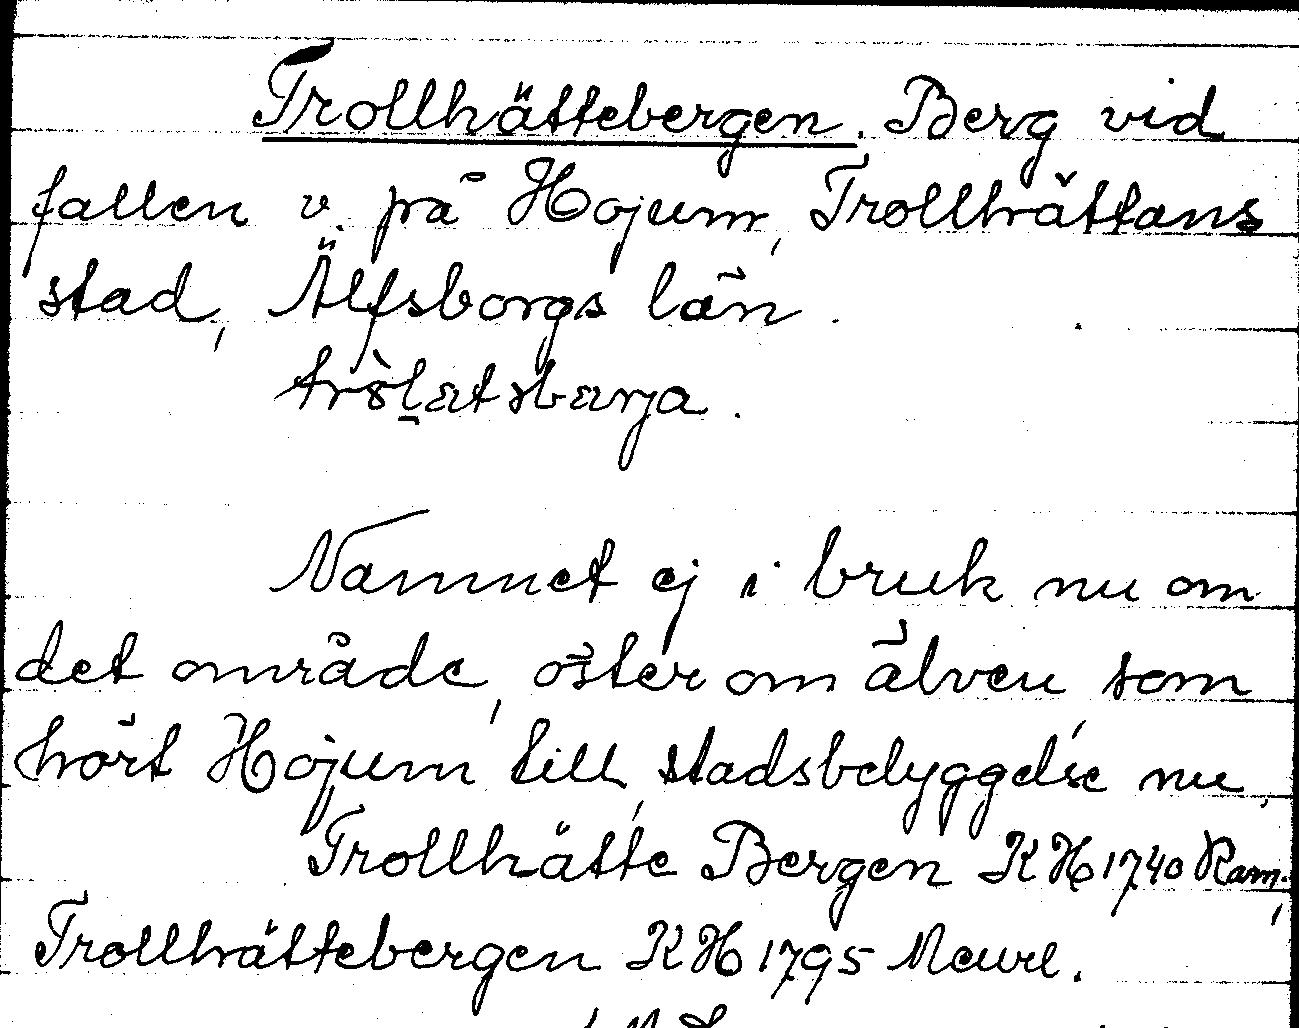 Trollhättebergen. Berg vid
fallen v. på Hojum, Trollhättans
stad, Älfsborgs län.
Namnet ej i bruk nu om
det område, öster om älven som
hört Hojum till, stadsbebyggelse nu.
Trollhätte Bergen KH 1740 Ram.,
Trollhättebergen KH 1795 Meurl.